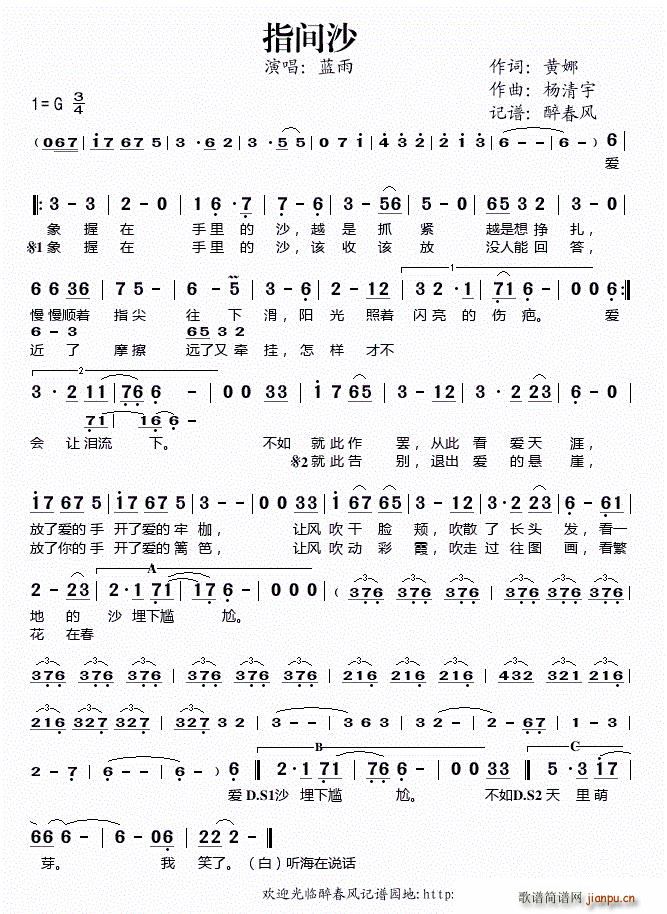 指间沙
演唱：蓝雨
作词：黄娜
作曲：杨清宇
记谱：醉春风
1=G 3/4
（067 | i7 675 | 3 · 62 | 3 · 3 | 071 | 432 | 2i3 | 6 - - | 6 - ） 6
爱
3 - 3 | 2 - 0 | 16 · 7 | 7 - 6 | 3 - 56 | 5 - 0 | 6532 | 3 - 0
象 握 在 手 里 的 沙，越 是 抓 紧 越是想挣扎，
𝄋1象 握 在 手 里 的 沙，该 收 该 放 没人能回答，
1
6636 | 75 - | 6 - 5 | 3 - 6 | 2 - 12 | 32 · 1 | 716 - | 006 :‖
慢慢顺着 指尖 往 下 滑，阳 光 照着 闪亮 的 伤 疤。 爱
6 - 3 6532
近 了 摩擦 远了又牵 挂，怎 样 才不
2
3 · 2 11 | 766 - | 0033 | i765 | 3 - 12 | 3 · 223 | 6 - 0 | 0033
71 166 -
会 让泪流 下。 不如 就此作 罢，从此 看 爱天 涯，
𝄋2就此告 别，退出 爱 的悬 崖，
i7675 | i7675 | 3 - - | 0033 | i6765 | 3 - 12 | 3 · 223 | 6 - 61
放了爱的手 开了爱的牢 枷， 让风 吹干脸 颊，吹散 了 长头 发，看一
放了你的手 开了爱的篱 笆， 让风 吹动彩 霞，吹走 过 往图 画，看繁
A
2 - 23 | 2 · 171 | 176 - | 000 |（376 376 | 376 376 | 376 376
地 的 沙 埋下尴 尬。
花 在春
376 376 | 376 376 | 376 376 | 216 216 | 216 216 | 432 321 216
216 327 327 | 327 32 | 3 - - | 363 | 32 - | 2 - 67 | 1 - 3
B
C
2 - 7 | 6 - - | 6 - ） 6 ‖ 2 · 171 | 766 - | 0033 ‖ 5 · 3 i7
爱 D.S1沙 埋下尴 尬。 不如D.S2 天 里萌
666 - | 6 - 06 | 222 - ‖
芽。 我 笑了。（白）听海在说话
欢迎光临醉春风记谱园地:http:
歌谱简谱网
jianpu.cn